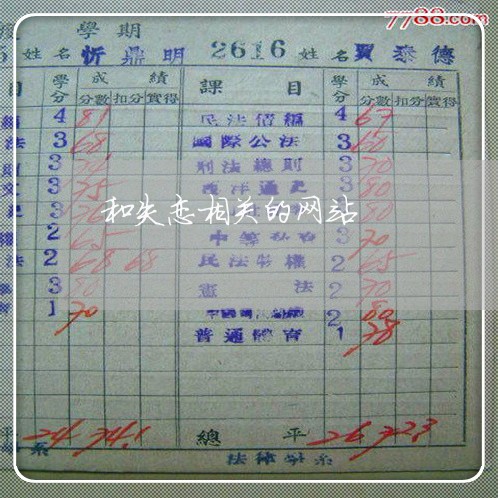 7788.com
度 學期
姓名 忻鼎明 2616 姓名 賈泰德
目 學分 成績 課目 學分 成績
分數 扣分 實得 分數 扣分 實得
4 81 民法債編 4 67
法 3 68 國際公法 3 60
3 刑法總則 3 70
3 75 西洋通史 3 80
和失恋相关的网站
2 65 3 70
法 2 68 68 民法物權 2 65
3 80 憲法 2 70
1 70 2 80
普通體育 1 78
平 24 74.1 總平 26 72.3
系 法律學系